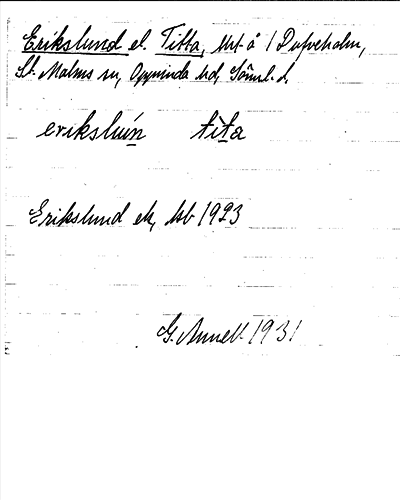 Erikslund el. Tibba, utt. å 1 Dufveholm,
St. Malms sn, Oppunda hd, Söml. l.
erikslun̄ tìta
Erikslund ek, kb 1923
G. Annell 1931